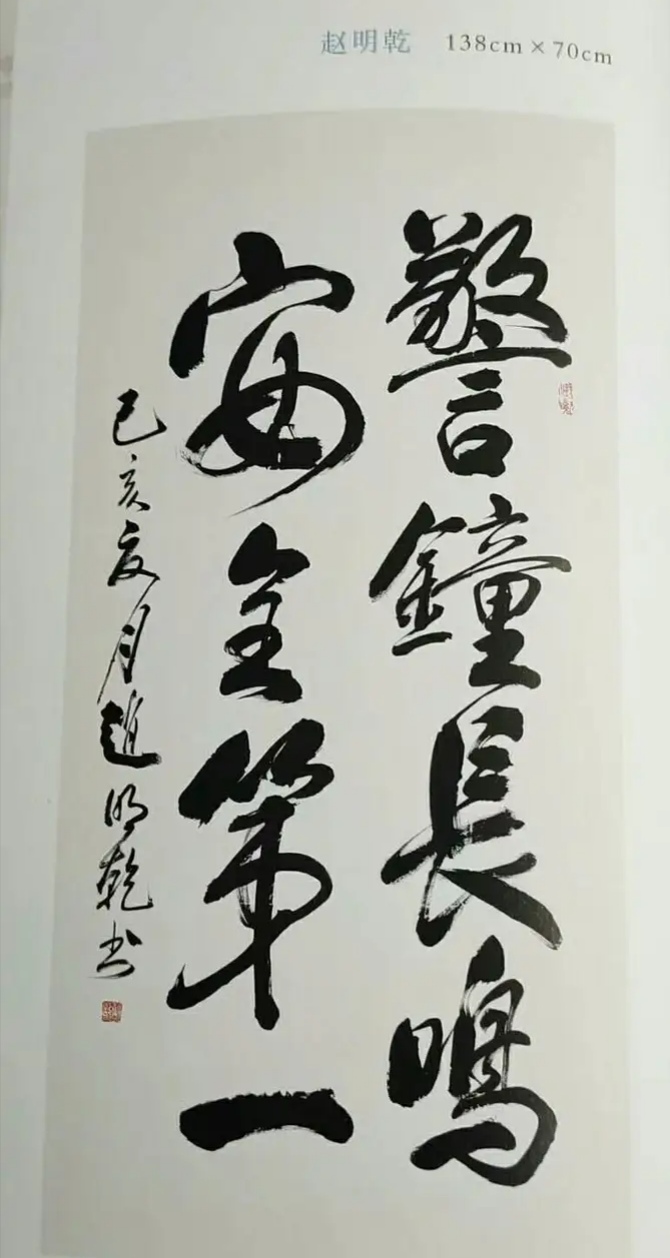 赵明乾 138cm×70cm
警鐘長鳴
安全第一
己亥夏月趙明乾书